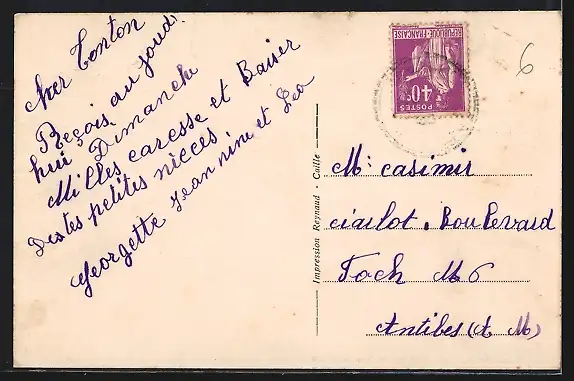 cher Tonton
Reçois au jourd.
hui Dimanche
Milles caresse et Baiser
Des tes petites nieces.
Georgette Jeannine et Lea
Impression Reynaud - Caille
REPUBLIQUE FRANÇAISE
40c
POSTES
6
M: casimir
ciarlot. Boulevard
Foch M 6
Antibes (A M)